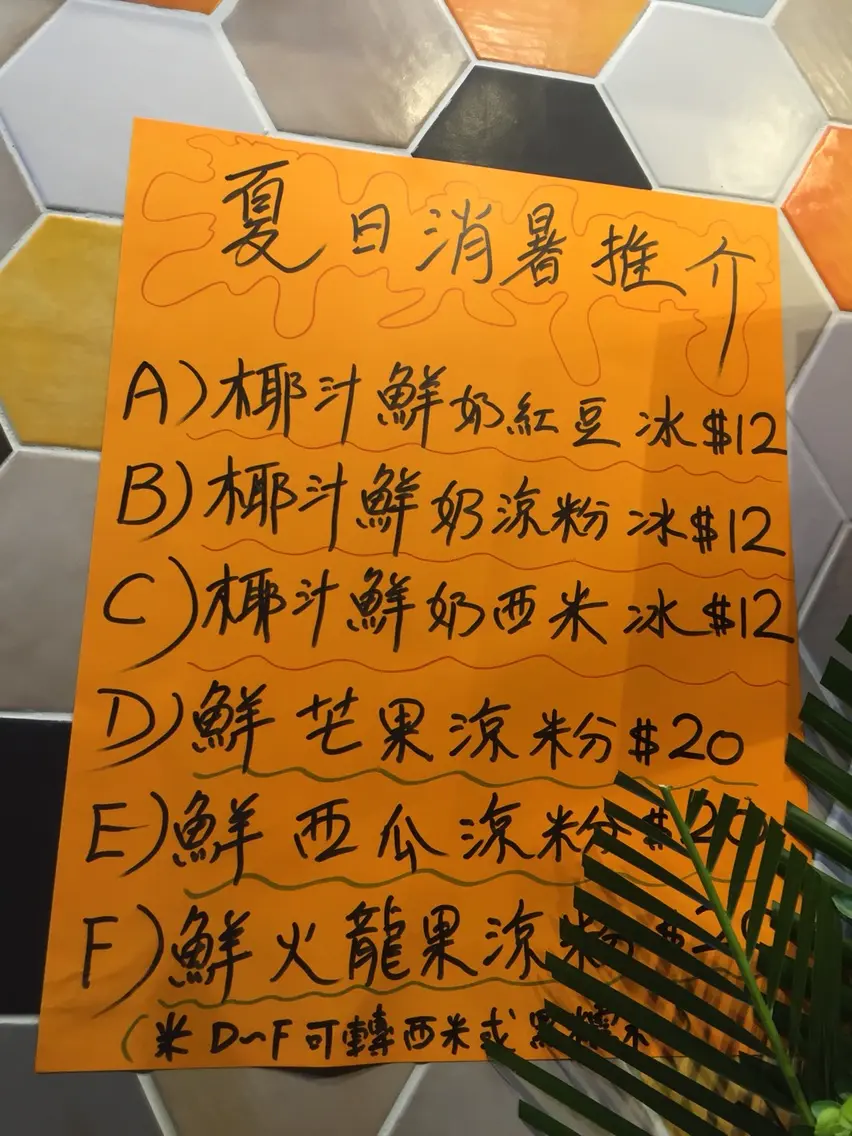 夏日消暑推介
A)椰汁鮮奶紅豆冰$12
B)椰汁鮮奶涼粉冰$12
C)椰汁鮮奶西米冰$12
D)鮮芒果涼粉$20
E)鮮西瓜涼粉$20
F)鮮火龍果涼粉$20
(米D~F可轉西米或黑糯米